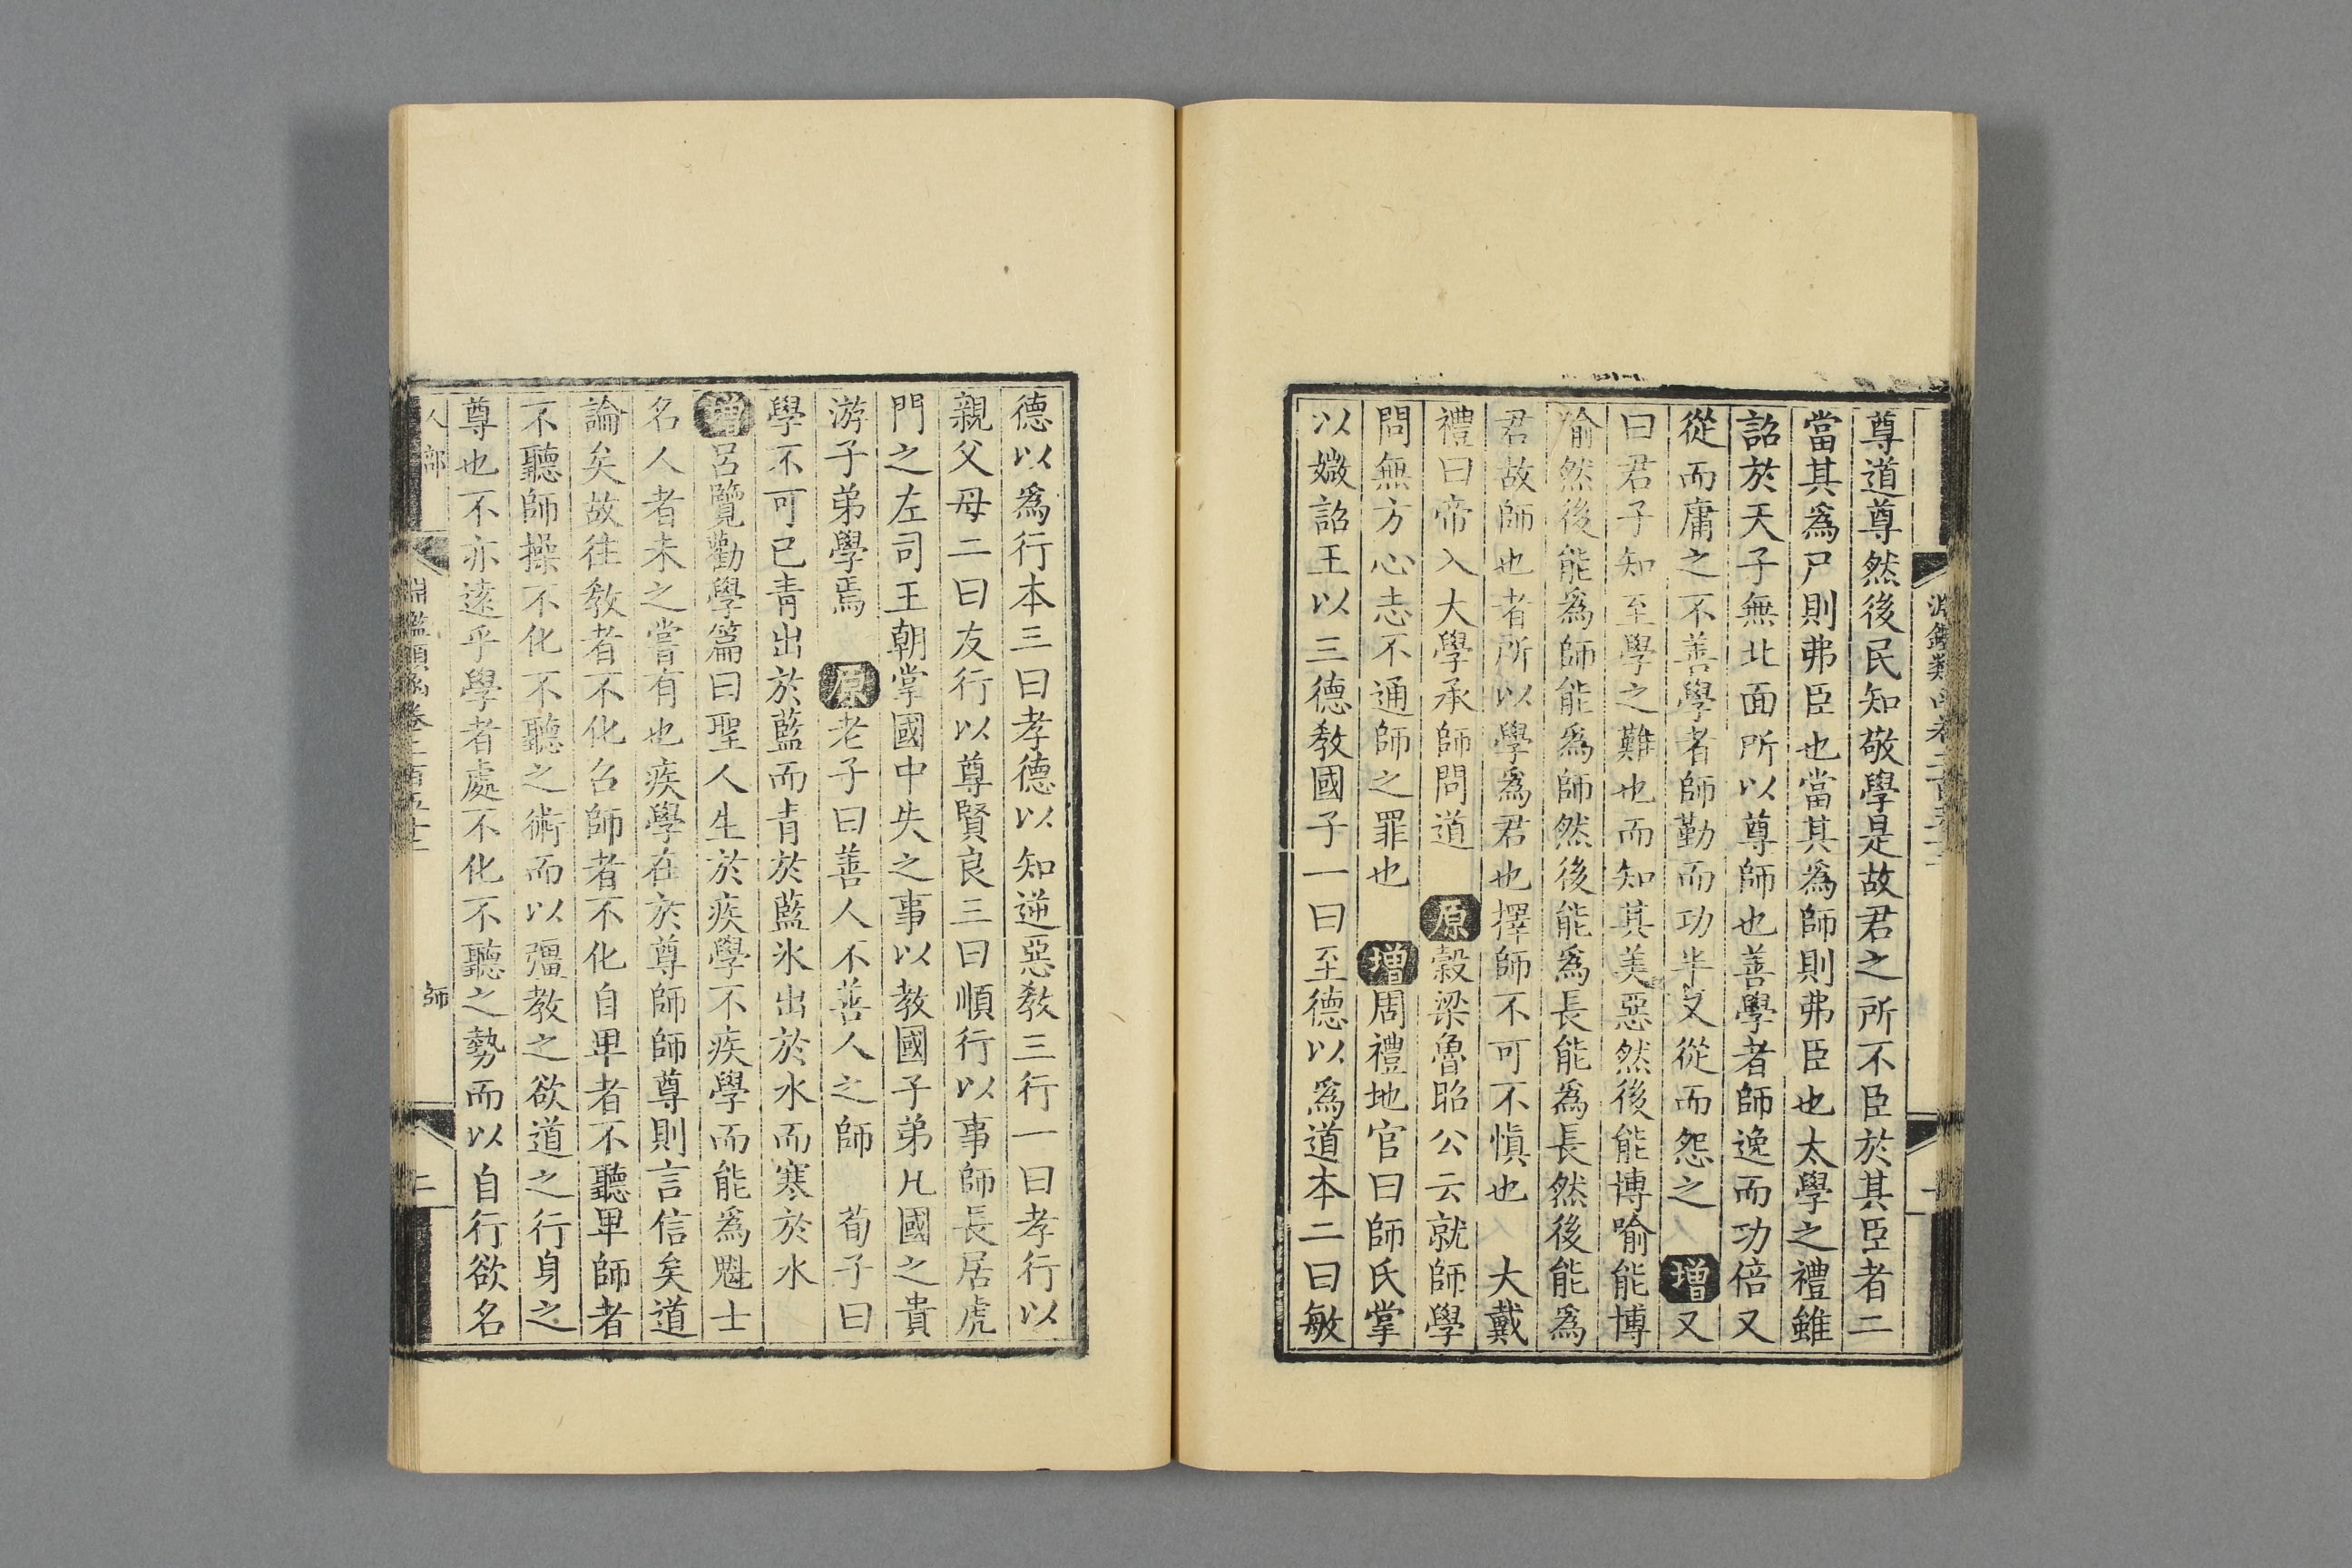 尊道尊然後民知敬學是故君之所不臣於其臣者二
當其爲尸則弗臣也當其爲師則弗臣也太學之禮雖
詔於天子無北面所以尊師也善學者師逸而功倍又
從而庸之不善學者師勤而功半又從而怨之 增又
曰君子知至學之難也而知其美惡然後能博喻能博
喻然後能爲師能爲師然後能爲長能爲長然後能爲
君故師也者所以學爲君也擇師不可不慎也 大戴
禮曰帝入大學承師問道 原穀梁魯昭公云就師學
問無方心志不通師之罪也 增周禮地官曰師氏掌
以媺詔王以三德敎國子一曰至德以爲道本二曰敏
德以爲行本三曰孝德以知逆惡敎三行一曰孝行以
親父母二曰友行以尊賢良三曰順行以事師長居虎
門之左司王朝掌國中失之事以教國子弟凡國之貴
游子弟學焉 原老子曰善人不善人之師 荀子曰
學不可已靑出於藍而靑於藍氷出於水而寒於水
增呂覽勸學篇曰聖人生於疾學不疾學而能爲魁士
名人者未之嘗有也疾學在於尊師師尊則言信矣道
論矣故往敎者不化召師者不化自卑者不聽卑師者
不聽師操不化不聽之術而以彊教之欲道之行身之
尊也不亦遠乎學者處不化不聽之勢而以自行欲名
人部
淵鑑類函卷二百五十二
師
二